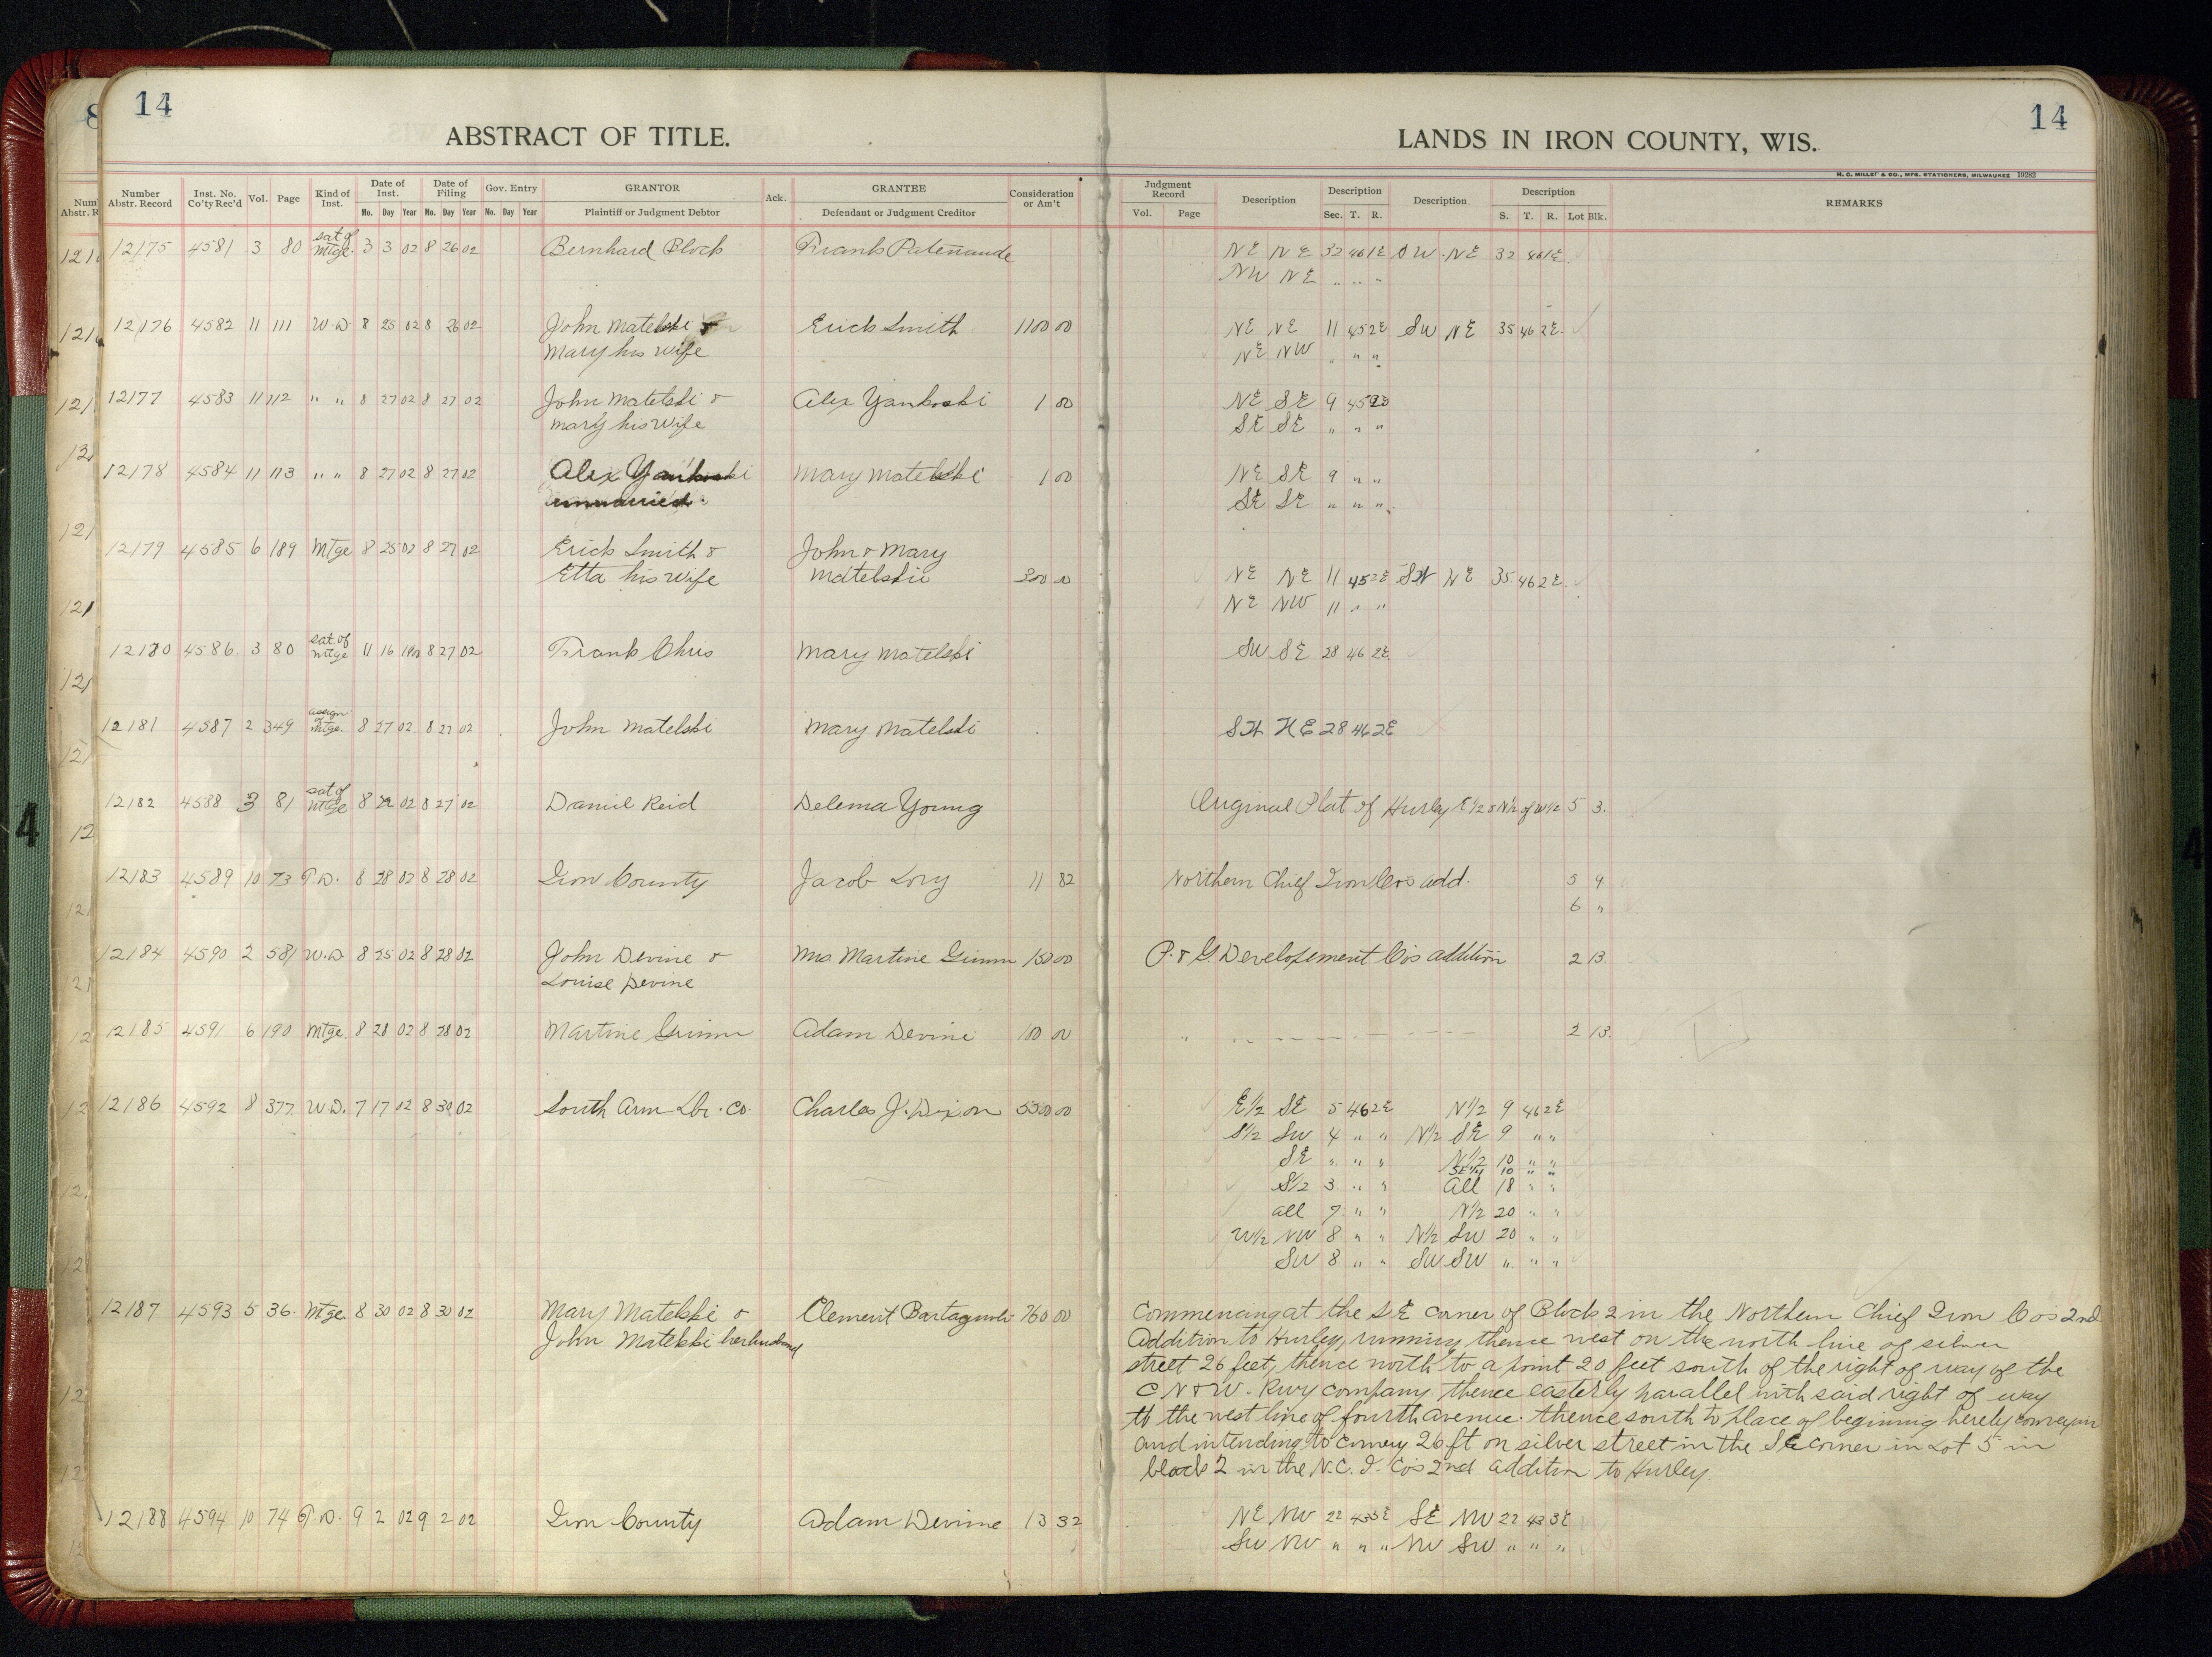 14
ABSTRACT OF TITLE.
LANDS IN IRON COUNTY, WIS.
14
H. C. MILLER & CO., MFG. STATIONERS, MILWAUKEE 19282
Number Abstr. Record Inst. No. Co'ty Rec'd Vol. Page Kind of Inst. Date of Inst. Date of Filing Gov. Entry GRANTOR Ack. GRANTEE Consideration or Am't Judgment Record Description Description Description Description REMARKS
No. Day Year No. Day Year No. Day Year Plaintiff or Judgment Debtor Defendant or Judgment Creditor Vol. Page Sec. T. R. S. T. R. Lot Blk.
12175 4581 3 80 sat of Mtge. 3 3 02 8 26 02 Bernhard Block Frank Patenaude NE NE 32 46 1E SW NE 32 46 1E
NW NE " " "
12176 4582 11 111 W.D. 8 25 02 8 26 02 John Matelski & Erick Smith 1100 00 NE NE 11 45 2E SW NE 35 46 2E
Mary his wife NE NW " " "
12177 4583 11 112 " " 8 27 02 8 27 02 John Matelski & Alex Yankoski 1 00 NE SE 9 45
Mary his wife SE SE " " "
12178 4584 11 113 " " 8 27 02 8 27 02 Alex Yankoski Mary Matelski 1 00 NE SE 9 " "
unmarried SE SE " " "
12179 4585 6 189 Mtge 8 25 02 8 27 02 Erick Smith & John & Mary
Etta his wife Matelskie 300 00 NE NE 11 45 2E SW NE 35 46 2E
NE NW 11 " "
12180 4586 3 80 sat. of mtge 11 16 8 27 02 Frank Chris Mary Matelski SW SE 28 46 2E
12181 4587 2 349 assign mtge. 8 27 02 8 27 02 John Matelski Mary Matelski 28 46 2E
12182 4588 3 81 sat of mtge 8 02 8 27 02 Daniel Reid Delema Young Original Plat of Hurley E 1/2 & N 1/2 of W 1/2 5 3
12183 4589 10 73 T.D. 8 28 02 8 28 02 Iron County Jacob Lory 11 82 Northern Chief Iron Co's add. 5 9
6 "
12184 4590 2 581 W.D. 8 25 02 8 28 02 John Devine & Mrs Martine Grimm 150 00 P. & G. Developement Co's addition 2 13
Louise Devine
12185 4591 6 190 Mtge 8 28 02 8 28 02 Martine Grimm Adam Devine 100 00 " " 2 13
12186 4592 8 377 W.D. 7 17 02 8 30 02 South Arm Lbr. Co. Charles J. Dixon 5500 00 E 1/2 SE 5 46 2E N 1/2 9 46 2E
S 1/2 SW 4 " " N 1/2 SE 9 " "
SE " " " N 1/2 10 " "
SE 1/4 10 " "
S 1/2 3 " " All 18 " "
all 7 " " N 1/2 20 " "
W 1/2 NW 8 " " N 1/2 SW 20 " "
SW 8 " " SW SW " " "
12187 4593 5 36 Mtge. 8 30 02 8 30 02 Mary Matelski & Clement 760 00 Commencing at the SE corner of Block 2 in the Northern Chief Iron Co's 2nd
John Matelski her husband Addition to Hurley, running thence west on the north line of silver
street 26 feet, thence north to a point 20 feet south of the right of way of the
C N & W. Rwy company thence easterly parallel with said right of way
to the west line of fourth avenue. thence south to place of begining hereby
and intending to convey 26 ft on silver street in the SE corner in Lot 5 in
block 2 in the N. C. I. Co's 2nd addition to Hurley.
12188 4594 10 74 T.D. 9 2 02 9 2 02 Iron County Adam Devine 13 32 NE NW 22 43 3E SE NW 22 43 3E
SW NW " " " NW SW " " "